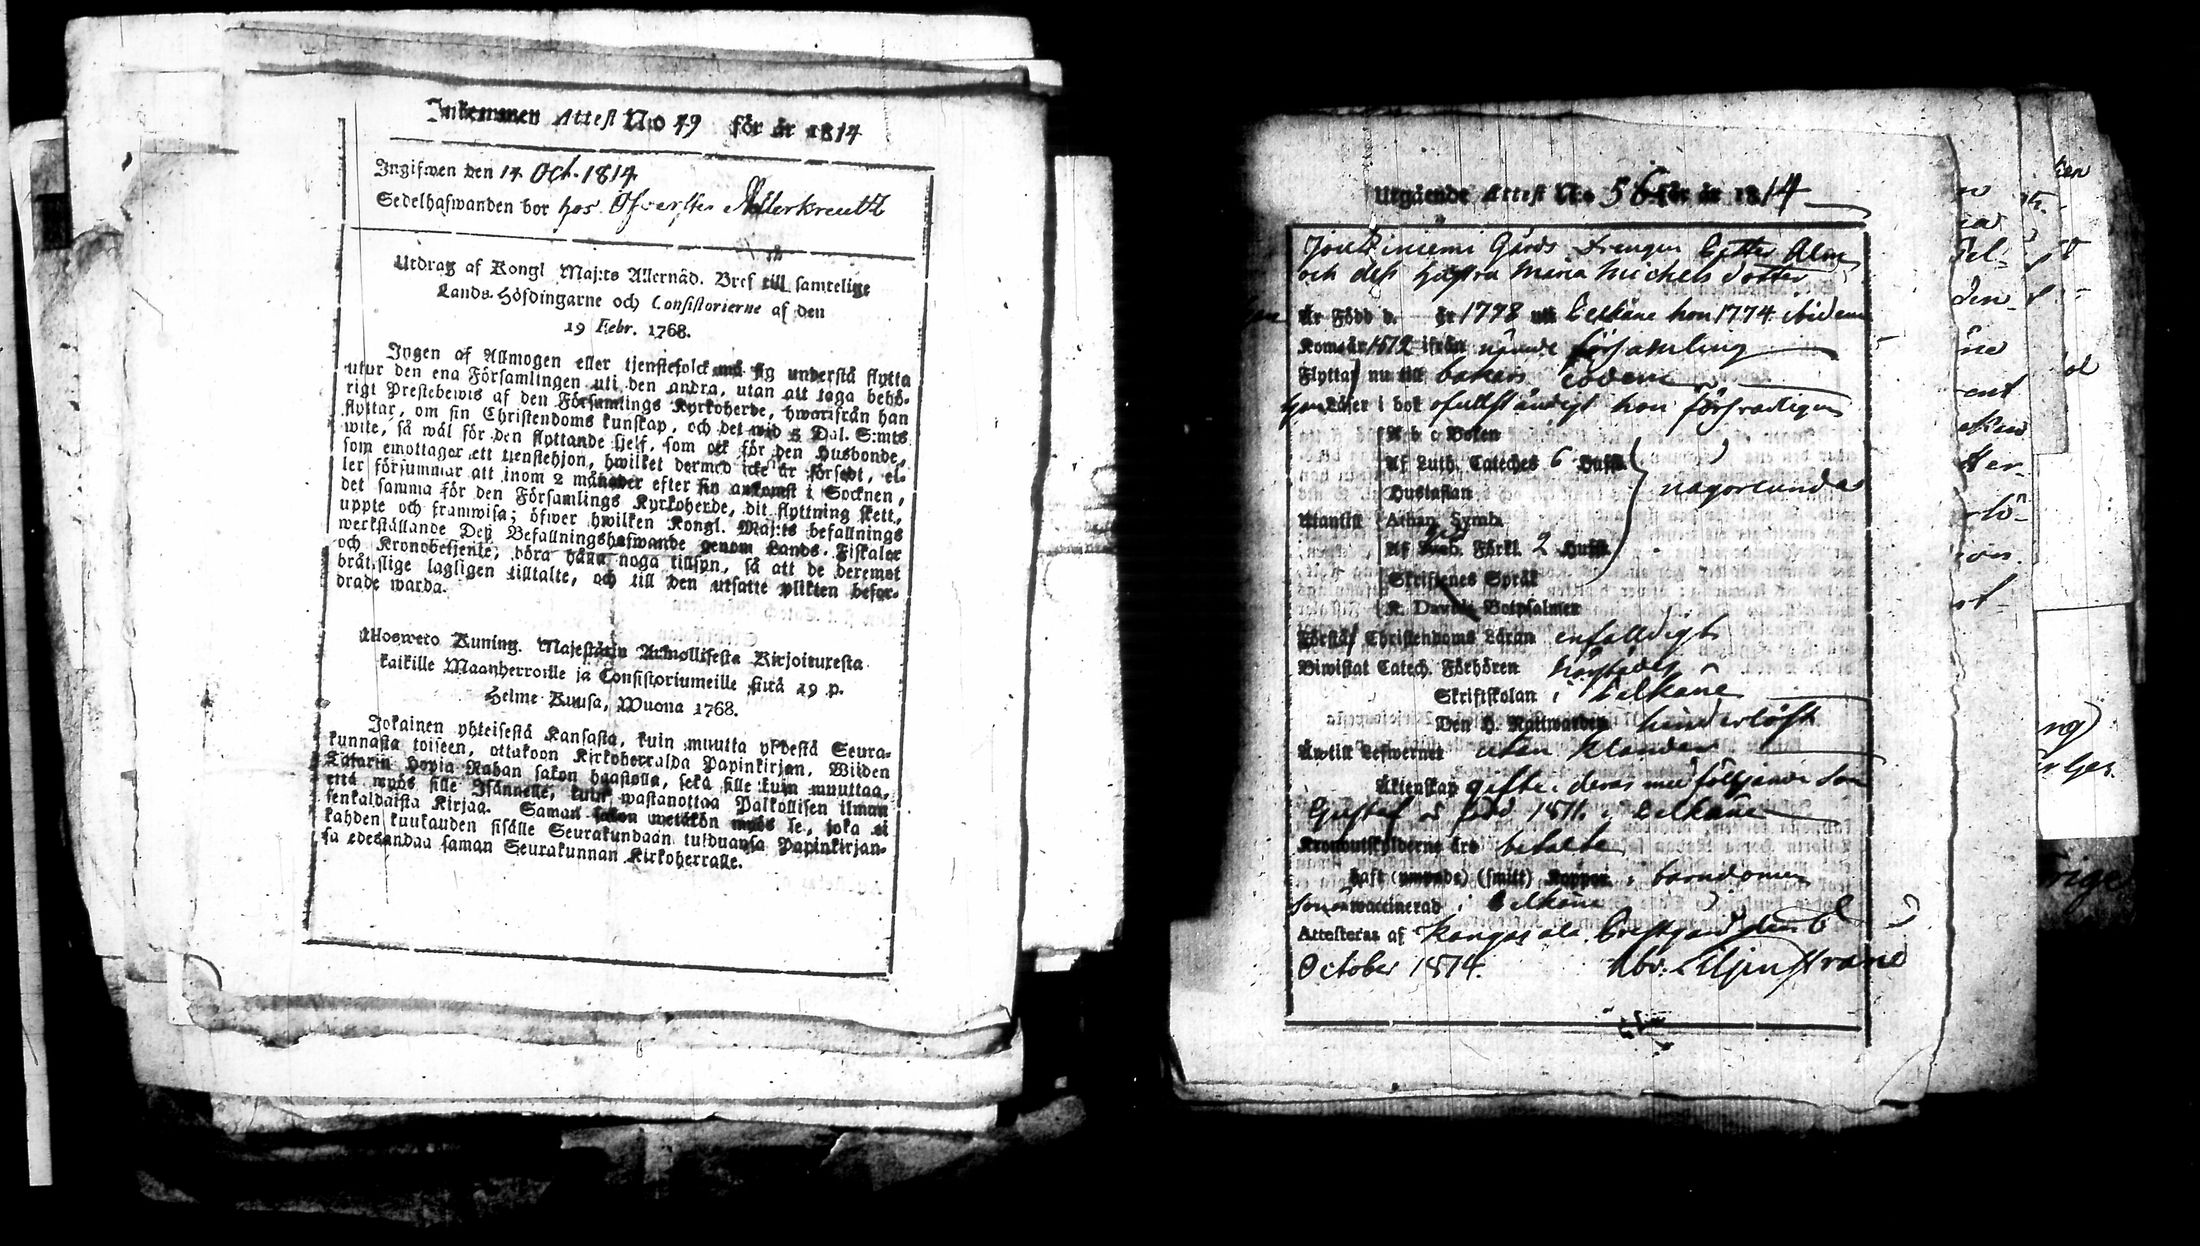 Inkommen Attest N:o 49 för år 1814
Ingifwen den 14 Oct. 1814
Sedelhafwanden bor hos Öfverste Adlerkreutz
Utdrag af Kongl Maj:ts Allernåd. Bref till samtelige
Lands-Höfdingarne och Consistorierne af den
19 Febr. 1768.
Ingen af Allmogen eller tjenstefolck må sig understå flytta
utur den ena Församlingen uti den andra, utan att taga behö-
rigt Prestebewis af den Församlings Kyrkoherde, hwarifrån han
flyttar, om sin Christendoms kunskap, och det wid 5 Dal. S:mts
wite, så wäl för den flyttande sjelf, som ock för den Husbonde,
som emottager ett tjenstehjon, hwilket dermed icke är försedt, el-
ler försummar att inom 2 månader efter sin ankomst i Socknen,
det samma för den Församlings Kyrkoherde, dit flyttning skett,
uppte och framwisa; öfwer hwilken Kongl. Maj:ts befallnings
werkställande Deß Befallningshafwande genom Lands-Fiskaler
och Kronobetjente, böra hålla noga tillsyn, så att de deremot
brått slige lagligen tilltalte, och till den utsatte plikten befor-
drade warda.
Ulosweto Kuning. Majestätin Armollisesta Kirjoituresta
kaikille Maanherroille ja Consistoriumeille siitä 19 p.
Helme-Kuusa, Wuona 1768.
Jokainen yhteisestä Kansasta, kuin muutta yhdestä Seura-
kunnasta toiseen, ottakoon Kirkoherralda Papinkirjan, Wiiden
Talarin Hopia Rahan sakon haastolla, sekä sille kuin muuttaa,
että myös sille Isännelle, kuin wastanottaa Palkollisen ilman
senkaldaista Kirjaa. Saman sakon wetäkön myös se, joka ei
kahden kuukauden sisälle Seurakundaan tulduansa Papinkirjan-
sa edesandaa saman Seurakunnan Kirkoherralle.
Utgående Attest N:o 56 för år 1814
Gårds Drengen Petter Alm
och deß hustru Maria Michels dotter
Är Född d. år 1778 uti Pelkäne hon 1774 ibidem
Kom år 1812 ifrån nämnde församling
Flyttar nu till bakars
Läser i bok ofullständigt hon försvarligen
A. b. c. Boken
Af Luth. Cateches 6 Hufst.
Hustaflan
någorlunda
Utantill Athan. Symb.
Af Förkl. 2 Hufst.
Skriftenes Språk
K. Davids Botpsalmer
Förstår Christendoms Läran enfalldigt
Biwistat Catech. Förhören
Skriftskolan i Pelkäne
Den H. Nattwarden hinderlöst
Är till Lefwernet utan klander
Äktenskap gifte: deras medföljande Son
Gustaf är född 1811 i Pelkäne
Kronoutskylderne äro betalte
haft (ympade) (smitt) Koppor i barndomen
Sonen waccinerad i Pelkäne
Attesteras af Kangasala Prestgård den 6
October 1814. Abr: Liljenstrand